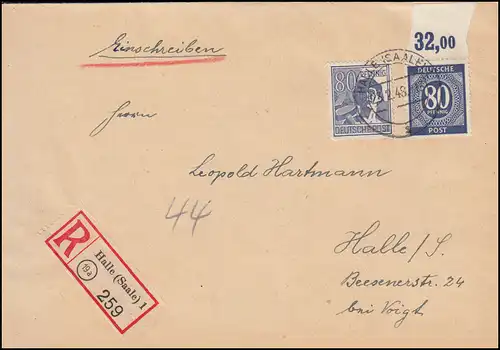 Einschreiben
32,00
80 PFENNIG
DEUTSCHE POST
HALLE (SAALE)
2.48
DEUTSCHE
80
PFENNIG
POST
Herrn
Leopold Hartmann
44
Halle/S.
Beesenerstr. 24
bei Voigt
R
Halle (Saale) 1
(19a)
259